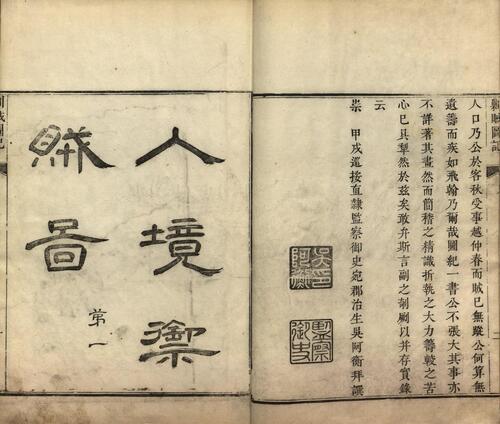 剿賊圖記
人口乃公於客秋受事越仲春而賊已無蹤公何算無
遺籌而疾如飛翰乃爾哉圖紀一書公不張大其事亦
不詳著其畫然而簡稽之精識折執之大力籌較之苦
心已具犂然於茲矣敢弁斯言副之剞劂以并存實錄
云
崇 甲戌巡按直隸監察御史宛郡治生吳阿衡拜譔
吳印阿衡
監察御史
入境禦
賊圖
第一